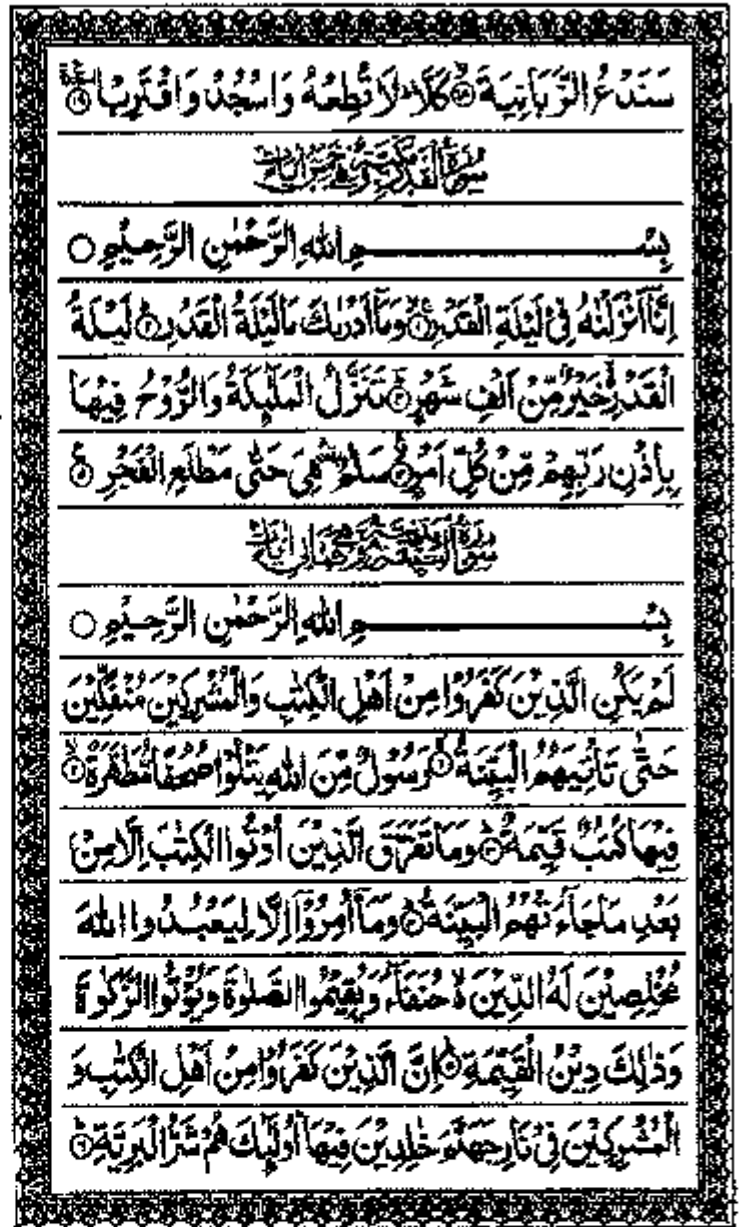 سَنَدْعُ الزَّبَانِيَةَ ۙ﴿۱۸﴾ كَلَّا ؕ لَا تُطِعْهُ وَاسْجُدْ وَاقْتَرِبْ ﴿۱۹﴾ السجدة
سُوْرَةُ الْقَدْرِ مَكِّيَّةٌ وَّهِيَ خَمْسُ اٰيَاتٍ
بِسْمِ اللّٰهِ الرَّحْمٰنِ الرَّحِيْمِ ○
اِنَّاۤ اَنْزَلْنٰهُ فِیْ لَيْلَةِ الْقَدْرِ ﴿۱﴾ وَمَاۤ اَدْرٰىكَ مَا لَيْلَةُ الْقَدْرِ ؕ﴿۲﴾ لَيْلَةُ
الْقَدْرِ ۙ خَيْرٌ مِّنْ اَلْفِ شَهْرٍ ؕ﴿۳﴾ تَنَزَّلُ الْمَلٰٓئِكَةُ وَالرُّوْحُ فِيْهَا
بِاِذْنِ رَبِّهِمْ مِّنْ كُلِّ اَمْرٍ ﴿۴﴾ سَلٰمٌ ۛ هِیَ حَتّٰی مَطْلَعِ الْفَجْرِ ﴿۵﴾
سُوْرَةُ الْبَيِّنَةِ مَدَنِيَّةٌ وَّهِيَ ثَمَانِيْ اٰيَاتٍ
بِسْمِ اللّٰهِ الرَّحْمٰنِ الرَّحِيْمِ ○
لَمْ يَكُنِ الَّذِيْنَ كَفَرُوْا مِنْ اَهْلِ الْكِتٰبِ وَالْمُشْرِكِيْنَ مُنْفَكِّيْنَ
حَتّٰی تَاْتِيَهُمُ الْبَيِّنَةُ ۙ﴿۱﴾ رَسُوْلٌ مِّنَ اللّٰهِ يَتْلُوْا صُحُفًا مُّطَهَّرَةً ۙ﴿۲﴾
فِيْهَا كُتُبٌ قَيِّمَةٌ ؕ﴿۳﴾ وَمَا تَفَرَّقَ الَّذِيْنَ اُوْتُوا الْكِتٰبَ اِلَّا مِنْۢ
بَعْدِ مَا جَآءَتْهُمُ الْبَيِّنَةُ ؕ﴿۴﴾ وَمَاۤ اُمِرُوْۤا اِلَّا لِيَعْبُدُوا اللّٰهَ
مُخْلِصِيْنَ لَهُ الدِّيْنَ ۙ حُنَفَآءَ وَيُقِيْمُوا الصَّلٰوةَ وَيُؤْتُوا الزَّكٰوةَ
وَذٰلِكَ دِيْنُ الْقَيِّمَةِ ؕ﴿۵﴾ اِنَّ الَّذِيْنَ كَفَرُوْا مِنْ اَهْلِ الْكِتٰبِ وَ
الْمُشْرِكِيْنَ فِیْ نَارِ جَهَنَّمَ خٰلِدِيْنَ فِيْهَا ؕ اُولٰٓئِكَ هُمْ شَرُّ الْبَرِيَّةِ ؕ﴿۶﴾